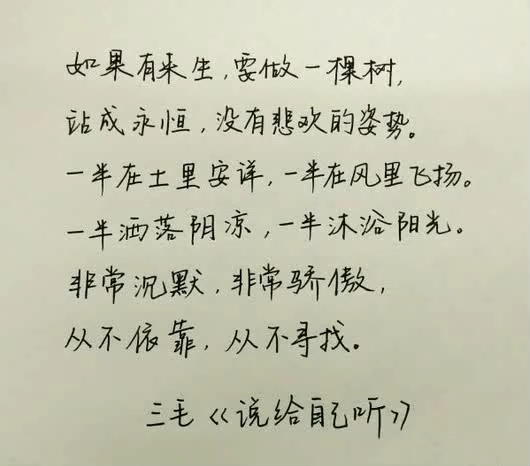 如果有来生,要做一棵树,
站成永恒,没有悲欢的姿势。
一半在土里安详,一半在风里飞扬。
一半洒落阴凉,一半沐浴阳光。
非常沉默,非常骄傲,
从不依靠,从不寻找。
三毛《说给自己听》